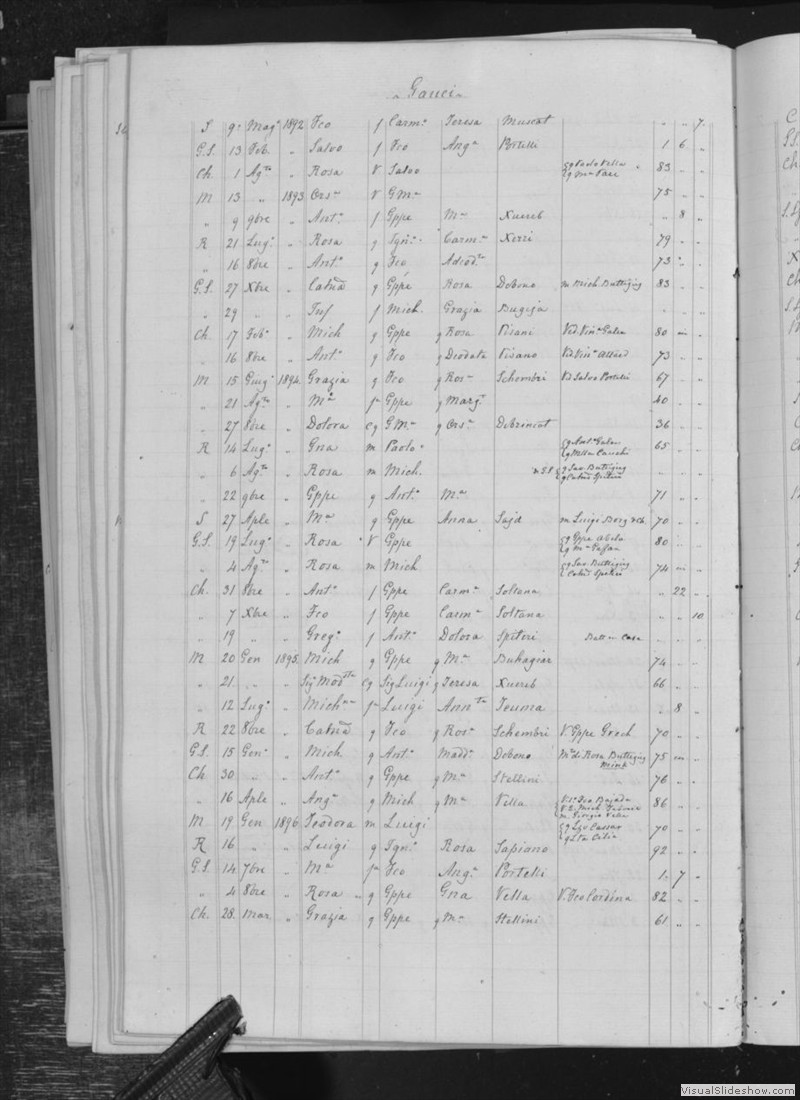 Gauci
S 9 Mag° 1892 Fco f Carm° Teresa Muscat " " 7
G.S. 13 Feb. " Salvo f Fco Ang^a Portelli 1 6 "
Ch. 1 Ag^to " Rosa V Salvo {g Paolo Vella {g M^a Pace 83 " "
M 13 " 1893 Ors^a V G.M^a 75 " "
" 9 9bre " Ant° f Gppe M^a Xuereb " 8 "
R 21 Lug° " Rosa g Ign° Carm^a Xerri 79 " "
" 16 8bre " Ant° g Fco 73 " "
G.S. 27 Xbre " Cat^na g Gppe Rosa Debono m Mich. Buttigieg 83 " "
" 29 " " f Mich. Grazia Bugeja " " "
Ch. 17 Feb° " Mich g Gppe g Rosa Pisani 80 m "
" 16 8bre " Ant° g Fco g Deodata Pisano 73 " "
M 15 Giug° 1894 Grazia g Fco g Ros^a Schembri Vd Salvo Portelli 67 " "
" 21 Ag^to " M^a f^a Gppe g Marg^t 40 " "
" 27 8bre " Dolora cg G.M^a g Ors^a Debrincat 36 " "
R 14 Lug° " Gna m Paolo 65 " "
" 6 Ag^to " Rosa m Mich. {g Sav. Buttigieg {g Catna Spiteri " "
" 22 9bre " Gppe g Ant° M^a 71 " "
S 27 Aple " M^a g Gppe Anna Sajd m Luigi Borg 70 " "
G.S. 19 Lug° " Rosa V Gppe {g Gppe Abela {g M^a 80 " "
" 4 Ag^to " Rosa m Mich {g Sav. Buttigieg 74 m "
Ch. 31 8bre " Ant° f Gppe Carm^a Soltana " 22 "
" 7 Xbre " Fco f Gppe Carm^a Soltana " " 10
" 19 " " Greg° f Ant° Dolora Spiteri Batt. in Casa " " "
M 20 Gen 1895 Mich g Gppe g M^a Buhagiar 74 " "
" 21 " " Sig^a Mod^sta cg Sig Luigi g Teresa Xuereb 66 " "
" 12 Lug° " f^a Luigi Teuma " 8 "
R 22 8bre " Cat^na g Fco g Ros^a Schembri V. Gppe Grech 70 " "
G.S. 15 Gen° " Mich g Ant° Madd^a Debono M° di Rosa Buttigieg 75 m "
Ch 30 " " Ant° g Gppe g M^a Stellini 76 " "
" 16 Aple " Ang^a g Mich g M^a Vella 86 " "
M 19 Gen 1896 Teodora m Luigi 70 " "
R 16 " " Luigi g Ign° Rosa Sapiano 92 " "
G.S. 14 7bre " M^a f^a Fco Ang^a Portelli 1 7 "
" 4 8bre " Rosa g Gppe Gna Vella V. Fco Cordina 82 " "
Ch. 28 Mar. " Grazia g Gppe g M^a Stellini 61 " "
VisualSlideshow.com